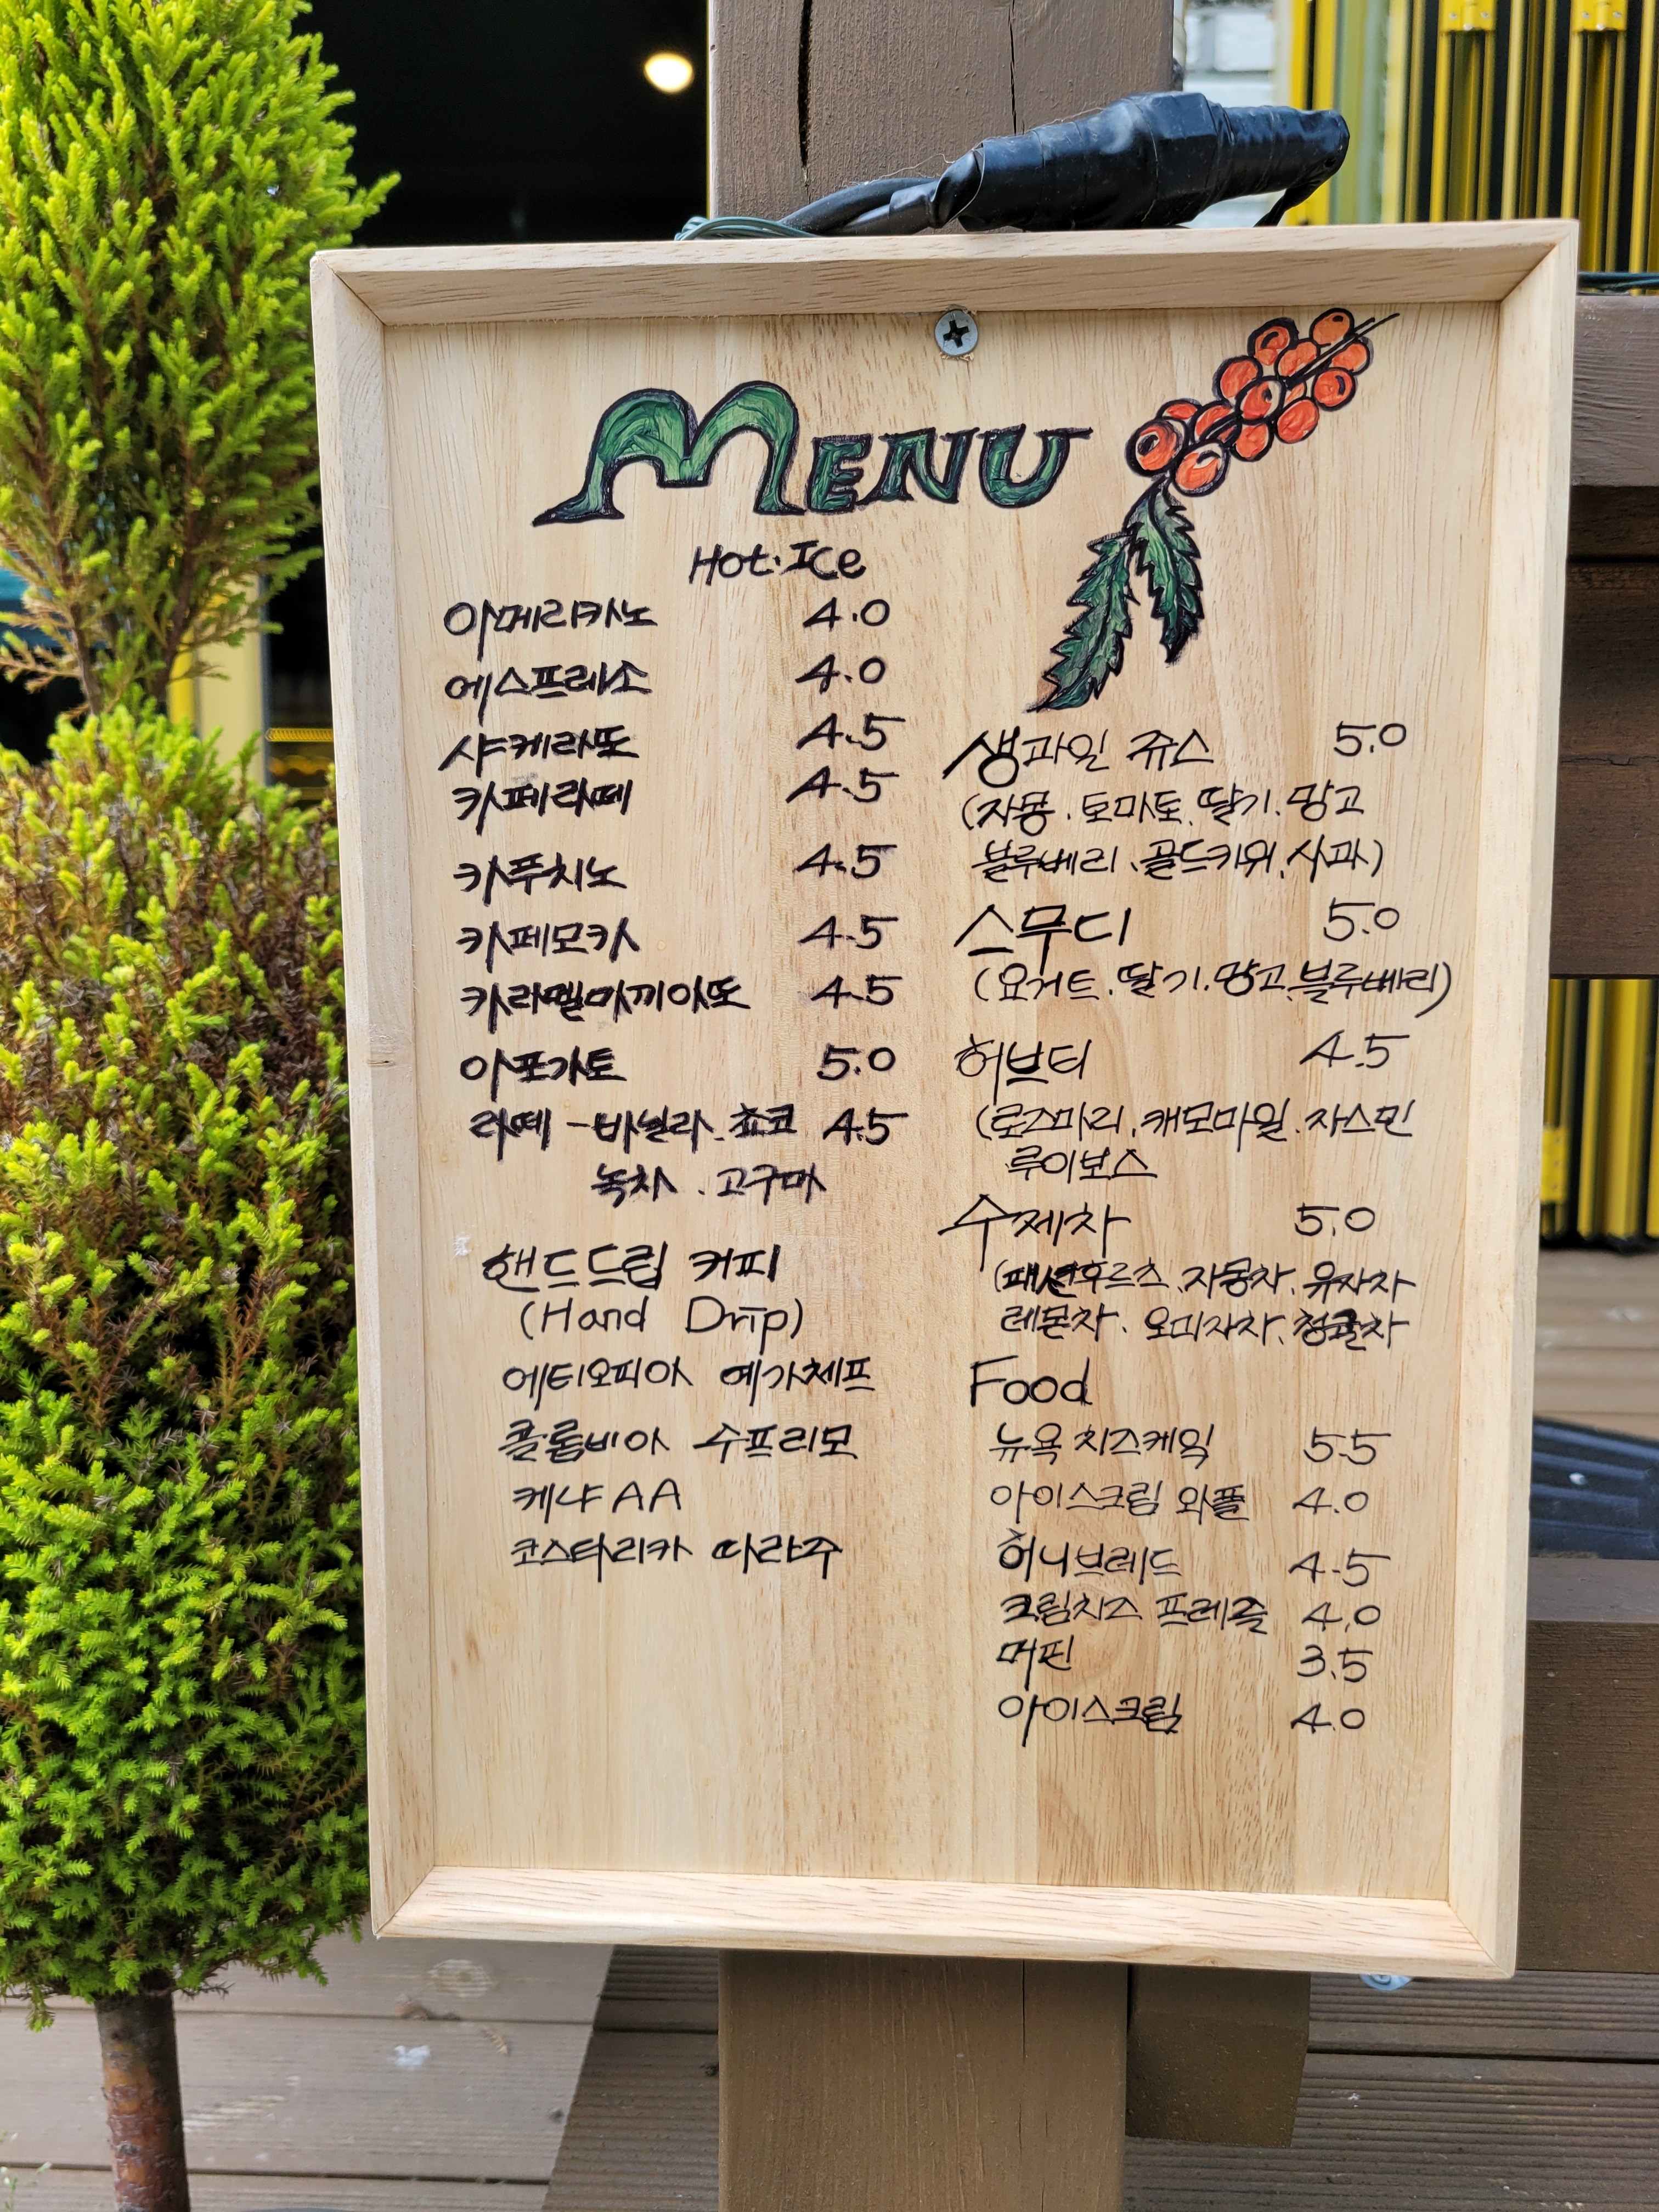 MENU
Hot·Ice
아메리카노 4.0
에스프레소 4.0
샤케라또 4.5
카페라떼 4.5
카푸치노 4.5
카페모카 4.5
카라멜마끼아또 4.5
아포가토 5.0
라떼 - 바닐라. 쵸코 4.5
녹차. 고구마
핸드드립 커피
(Hand Drip)
에티오피아 예가체프
콜롬비아 수프리모
케냐 AA
코스타리카 따라주
생과일 쥬스 5.0
(자몽. 토마토. 딸기. 망고
블루베리. 골드키위. 사과)
스무디 5.0
(요거트. 딸기. 망고. 블루베리)
허브티 4.5
(로즈마리. 캐모마일. 자스민
루이보스
수제차 5.0
(패션후르츠. 자몽차. 유자차
레몬차. 오미자차. 청귤차
Food
뉴욕 치즈케익 5.5
아이스크림 와플 4.0
허니브레드 4.5
크림치즈 프레즐 4.0
머핀 3.5
아이스크림 4.0